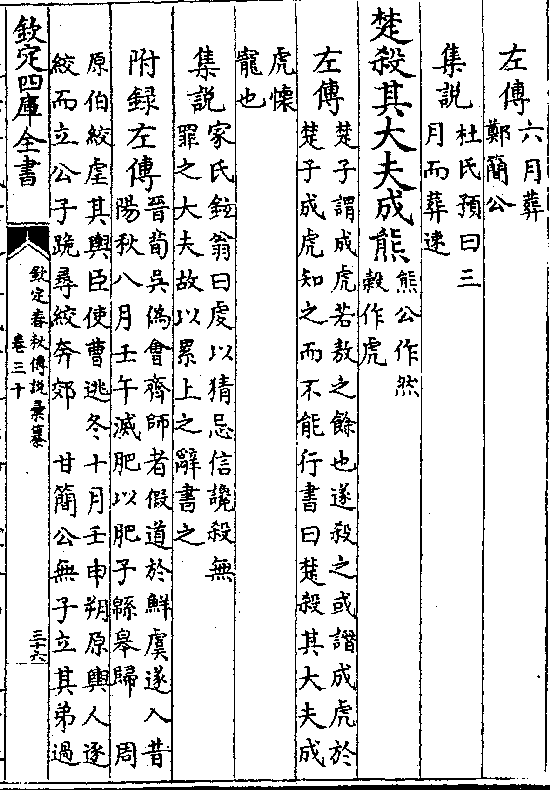 左傳六月葬
鄭簡公
集說杜氏預曰三
月而葬速
楚殺其大夫成熊熊公作然
穀作虎
左傳楚子謂成虎若敖之餘也遂殺之或譖成虎於
楚子成虎知之而不能行書曰楚殺其大夫成
虎懷
寵也
集說家氏鉉翁曰虔以猜忌信讒殺無
罪之大夫故以累上之辭書之
附録左傳晉荀吳偽會齊師者假道於鮮虞遂入昔
陽秋八月壬午滅肥以肥子緜皋歸 周
原伯絞虐其輿臣使曹逃冬十月壬申朔原輿人逐
絞而立公子跪尋絞奔郊 甘簡公無子立其弟過
欽定四庫全書
欽定春秋傳說彙纂
卷三十
三十六